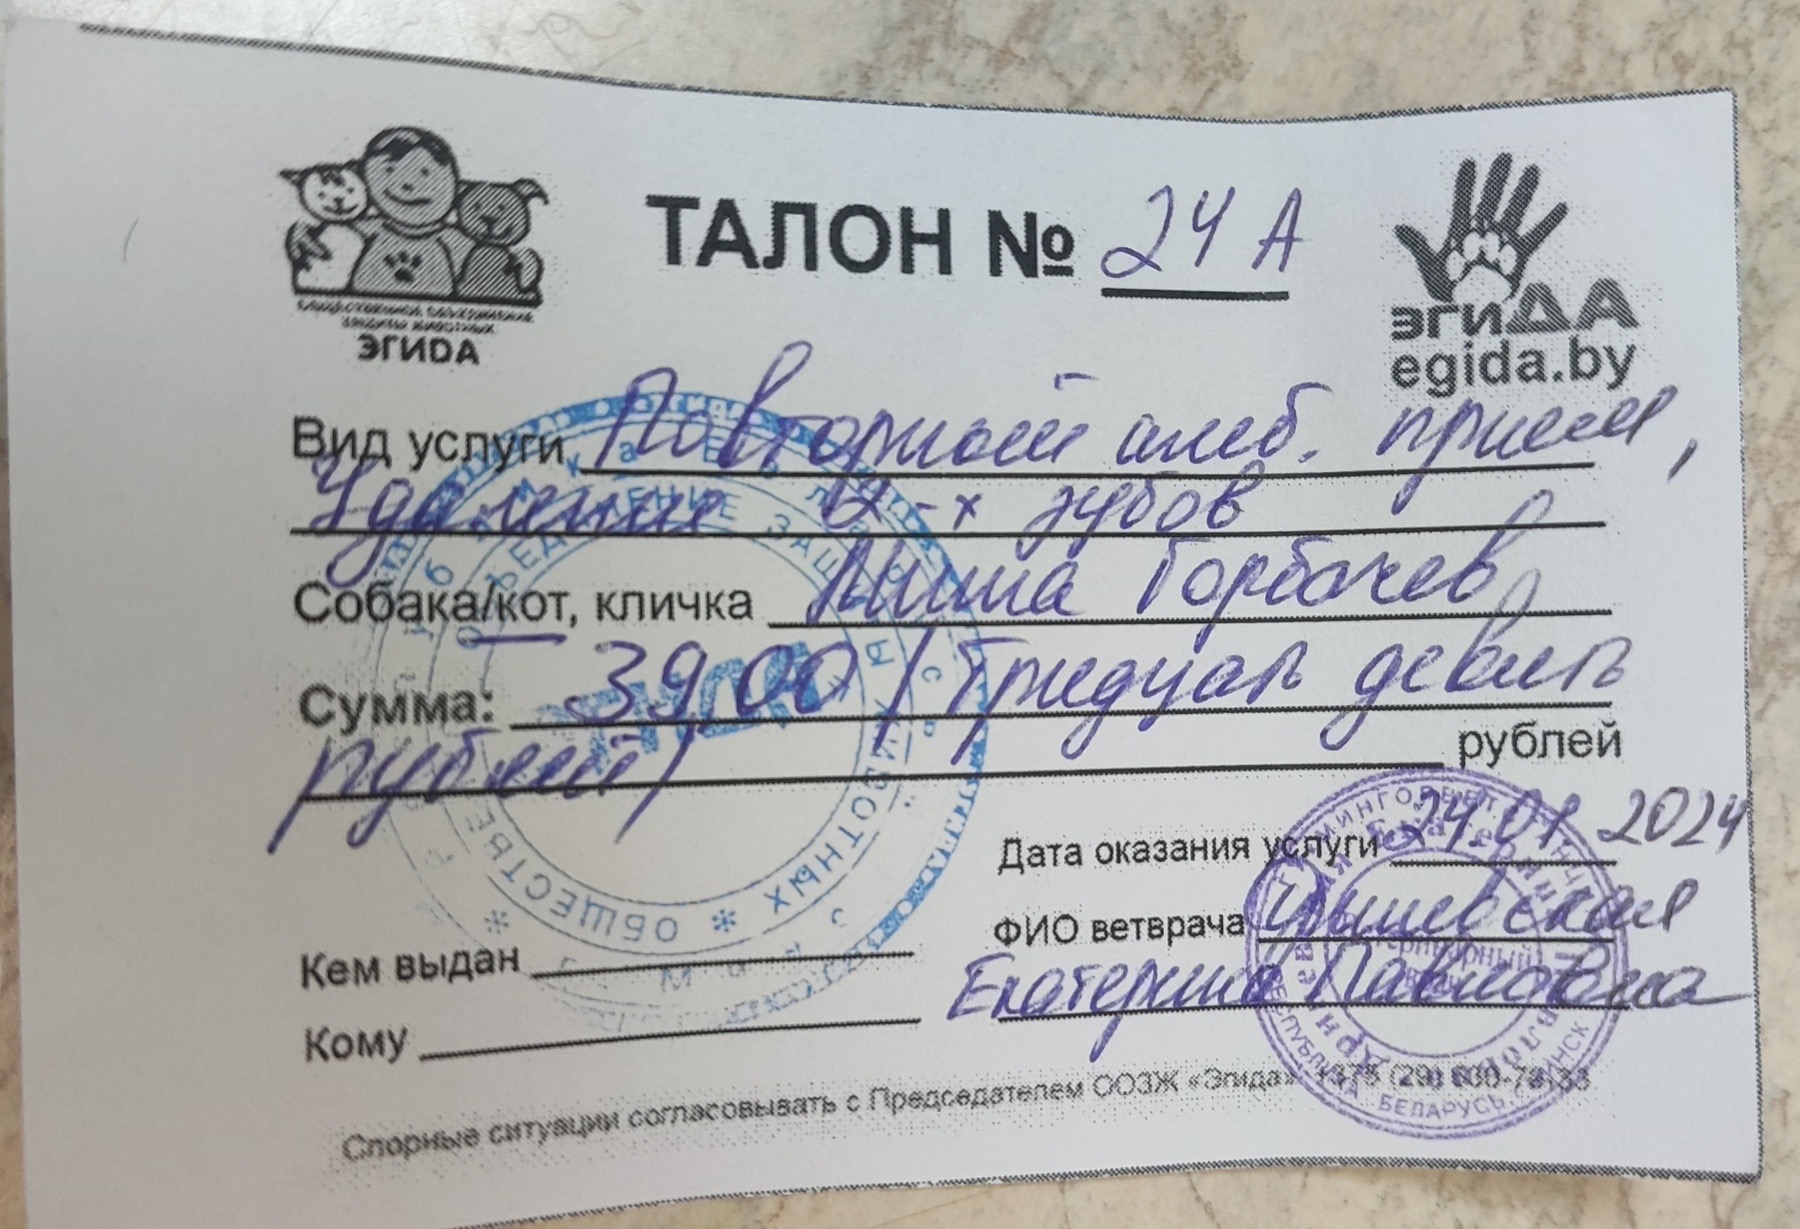 ТАЛОН № 24 А
ОБЩЕСТВЕННОЕ ОБЪЕДИНЕНИЕ
ЗАЩИТЫ ЖИВОТНЫХ
ЭГИДА
ЭГИДА
egida.by
Вид услуги Повторный амб. прием,
Удаление 2-х зубов
Собака/кот, кличка Миша Горбачев
Сумма: 39,00 / Тридцать девять
рублей/ рублей
Дата оказания услуги 24.01 2024
ФИО ветврача
Екатерина Павловна
Кем выдан
Кому
Спорные ситуации согласовывать с Председателем ООЗЖ «Эгида» +375 (29)
ОБЩЕСТВЕННОЕ ОБЪЕДИНЕНИЕ ЗАЩИТЫ ЖИВОТНЫХ
ЭГИДА
РЕСПУБЛИКА БЕЛАРУСЬ Г. МИНСК